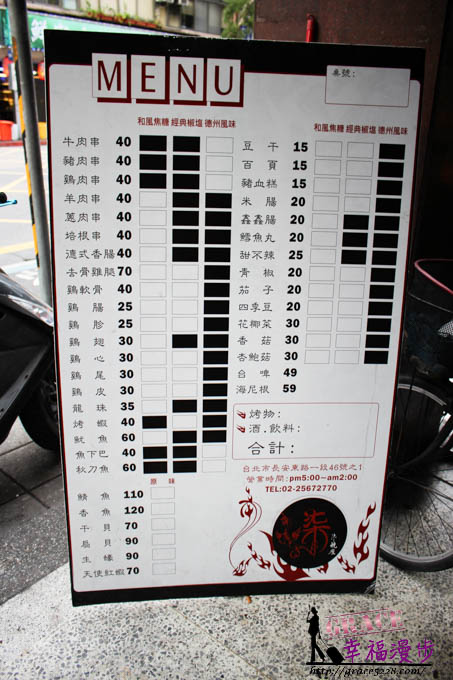 MENU
桌號：
和風焦糖 經典椒塩 德州風味
牛肉串 40
豬肉串 40
鷄肉串 40
羊肉串 40
蔥肉串 40
培根串 40
德式香腸 40
去骨雞腿 70
鷄軟骨 40
鷄腸 25
鷄胗 25
鷄翅 30
鷄心 30
鷄尾 30
鷄皮 30
龍珠 35
烤蝦 40
魷魚 60
魚下巴 40
秋刀魚 60
原味
鯖魚 110
香魚 120
干貝 70
扇貝 90
生蠔 90
天使紅蝦 70
和風焦糖 經典椒塩 德州風味
豆干 15
百頁 15
豬血糕 15
米腸 20
鑫鑫腸 20
鱈魚丸 20
甜不辣 25
青椒 20
茄子 20
四季豆 20
花椰菜 30
香菇 30
杏鮑菇 30
台啤 49
海尼根 59
烤物：
酒.飲料：
合計：
台北市長安東路一段46號之1
營業時間：pm5:00~am2:00
TEL:02-25672770
柒
幸福漫步
http://grace5228.com/